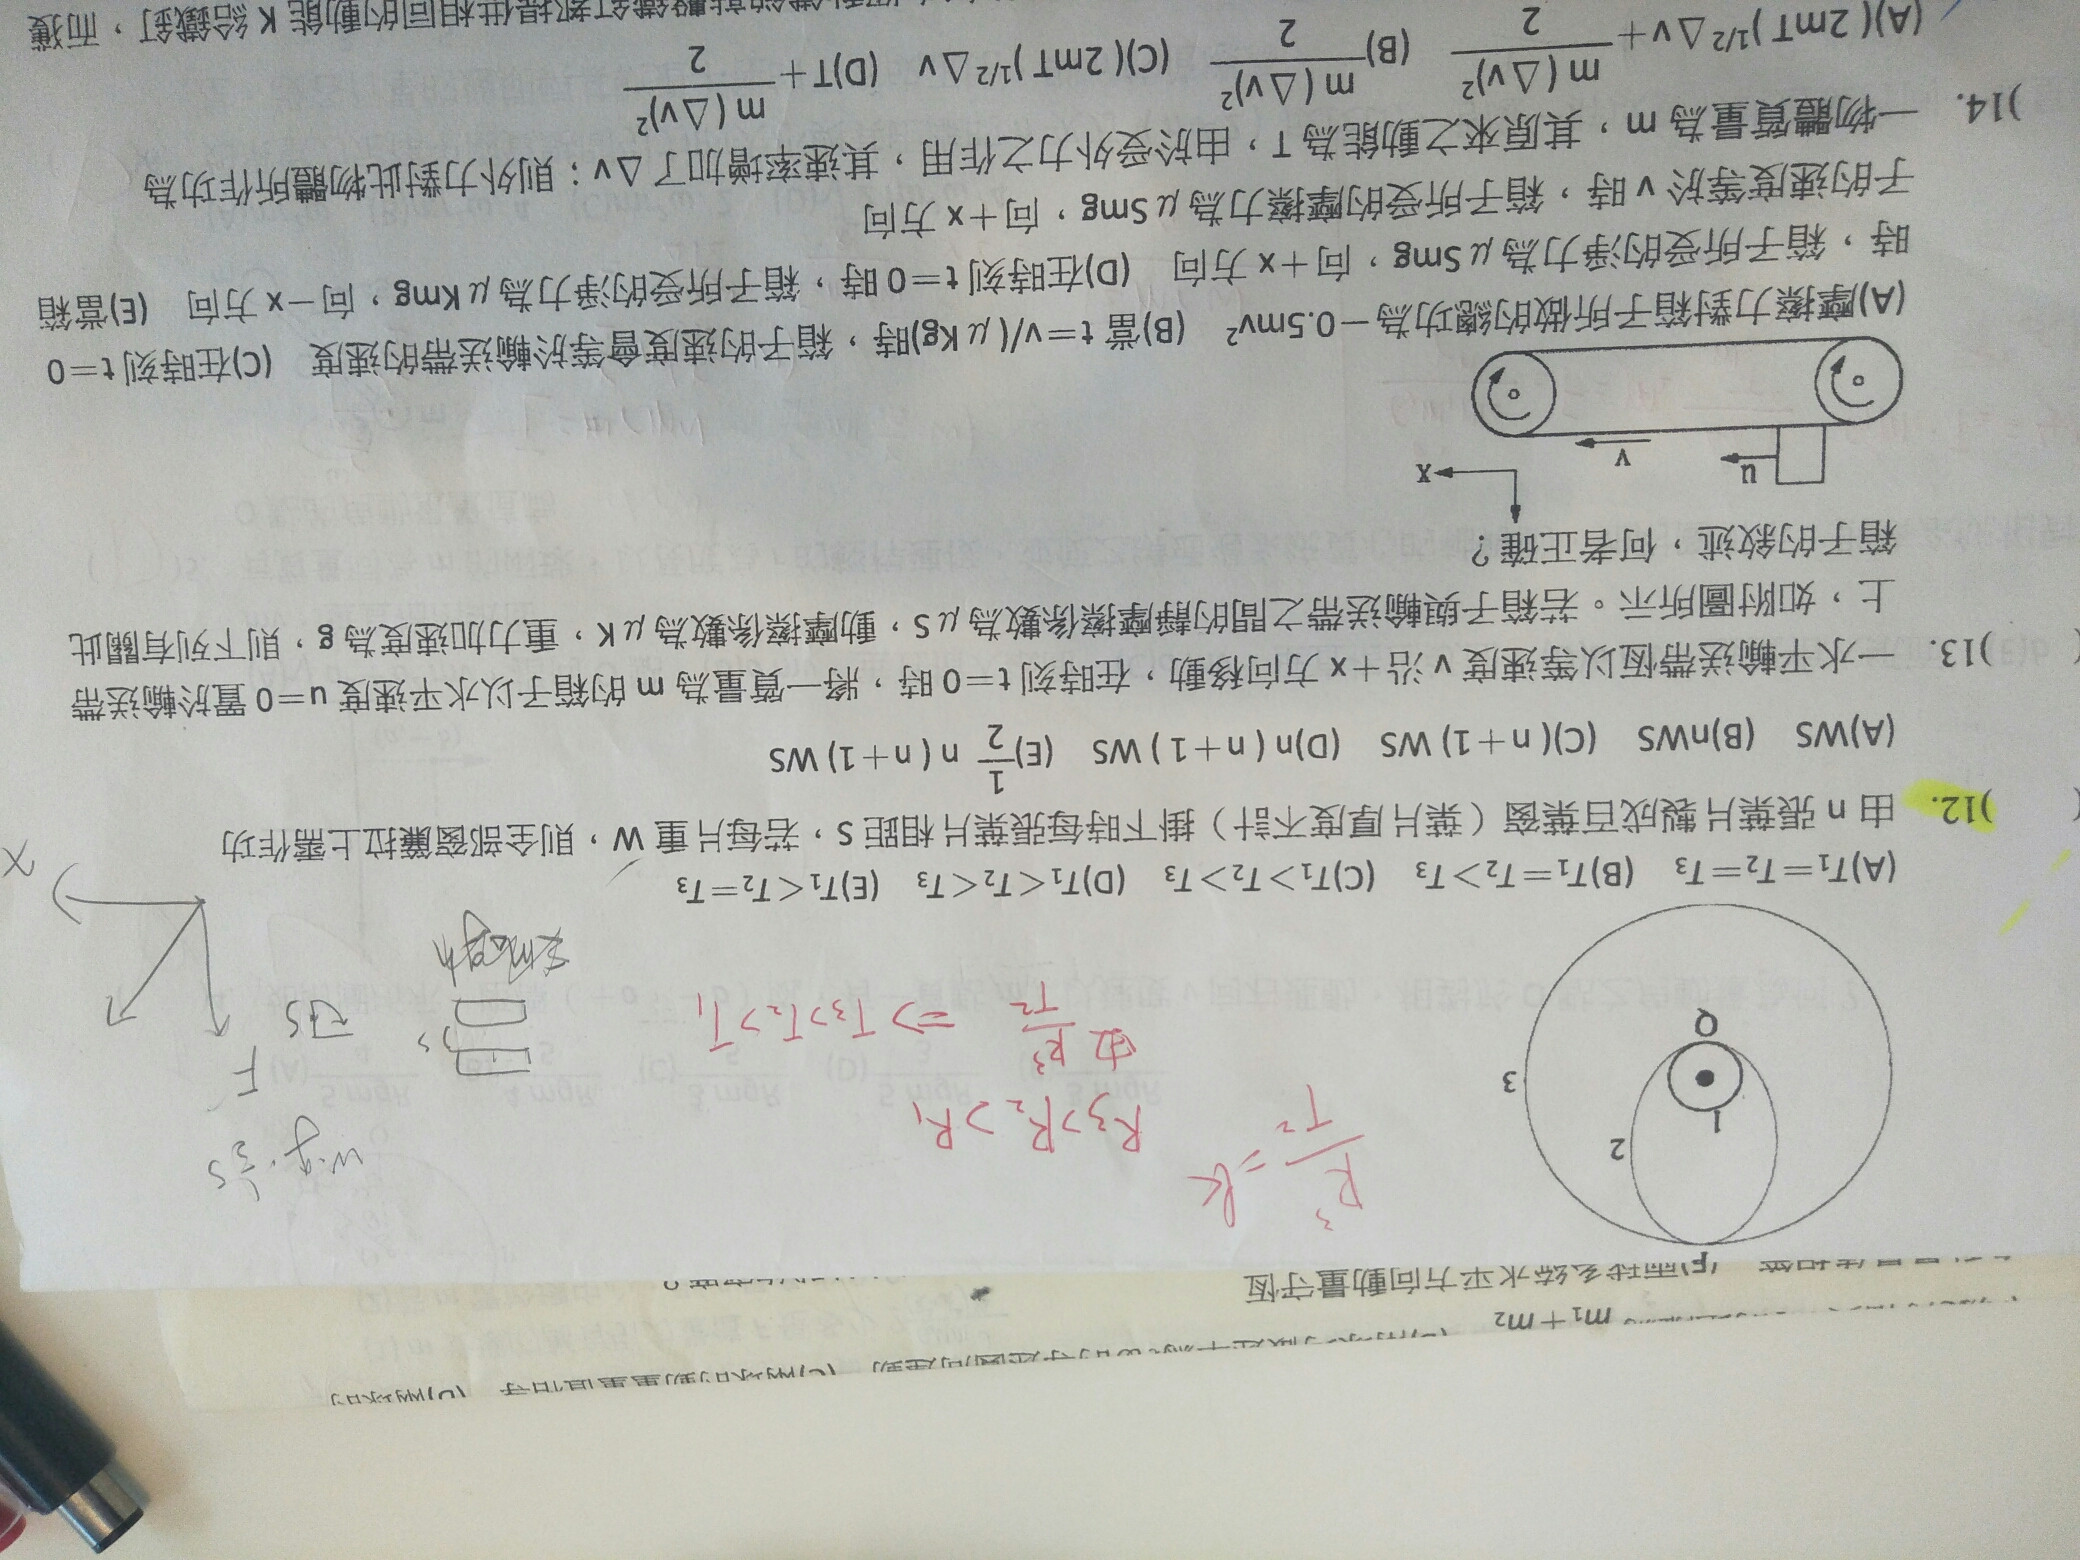 m₁+m₂
(E)兩球系統水平方向動量守恆
P
2
1
3
Q
R³/T²=k
R₃>R₂>R₁
由 R³/T² => T₃>T₂>T₁
F
S
(A)T₁=T₂=T₃ (B)T₁=T₂>T₃ (C)T₁>T₂>T₃ (D)T₁<T₂<T₃ (E)T₁<T₂=T₃
X
( )12. 由 n 張葉片製成百葉窗(葉片厚度不計)掛下時每張葉片相距 S,若每片重 W,則全部窗簾拉上需作功
(A)WS (B)nWS (C)( n+1) WS (D)n ( n+1 ) WS (E)1/2 n ( n+1) WS
( )13. 一水平輸送帶恆以等速度 v 沿+x 方向移動,在時刻 t=0 時,將一質量為 m 的箱子以水平速度 u=0 置於輸送帶
上,如附圖所示。若箱子與輸送帶之間的靜摩擦係數為 μS,動摩擦係數為 μK,重力加速度為 g,則下列有關此
箱子的敘述,何者正確?
x
u
v
(A)摩擦力對箱子所做的總功為-0.5mv² (B)當 t=v/( μKg)時,箱子的速度會等於輸送帶的速度 (C)在時刻 t=0
時,箱子所受的淨力為 μSmg,向+x 方向 (D)在時刻 t=0 時,箱子所受的淨力為 μKmg,向-x 方向 (E)當箱
子的速度等於 v 時,箱子所受的摩擦力為 μSmg,向+x 方向
)14. 一物體質量為 m,其原來之動能為 T,由於受外力之作用,其速率增加了 △v;則外力對此物體所作功為
(A)( 2mT )^1/2 △v+ m ( △v)²/2 (B) m ( △v)²/2 (C)( 2mT )^1/2 △v (D)T+ m ( △v)²/2
都提供相同的動能 K 給鐵釘,而獲